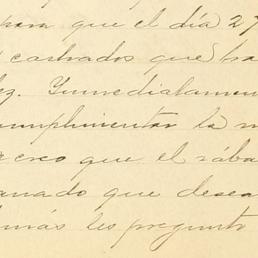 para que el día 27
castrados que tra
ez. Inmediatamen
umplimentar la
creo que el sába
anado que desea
más les pregunto